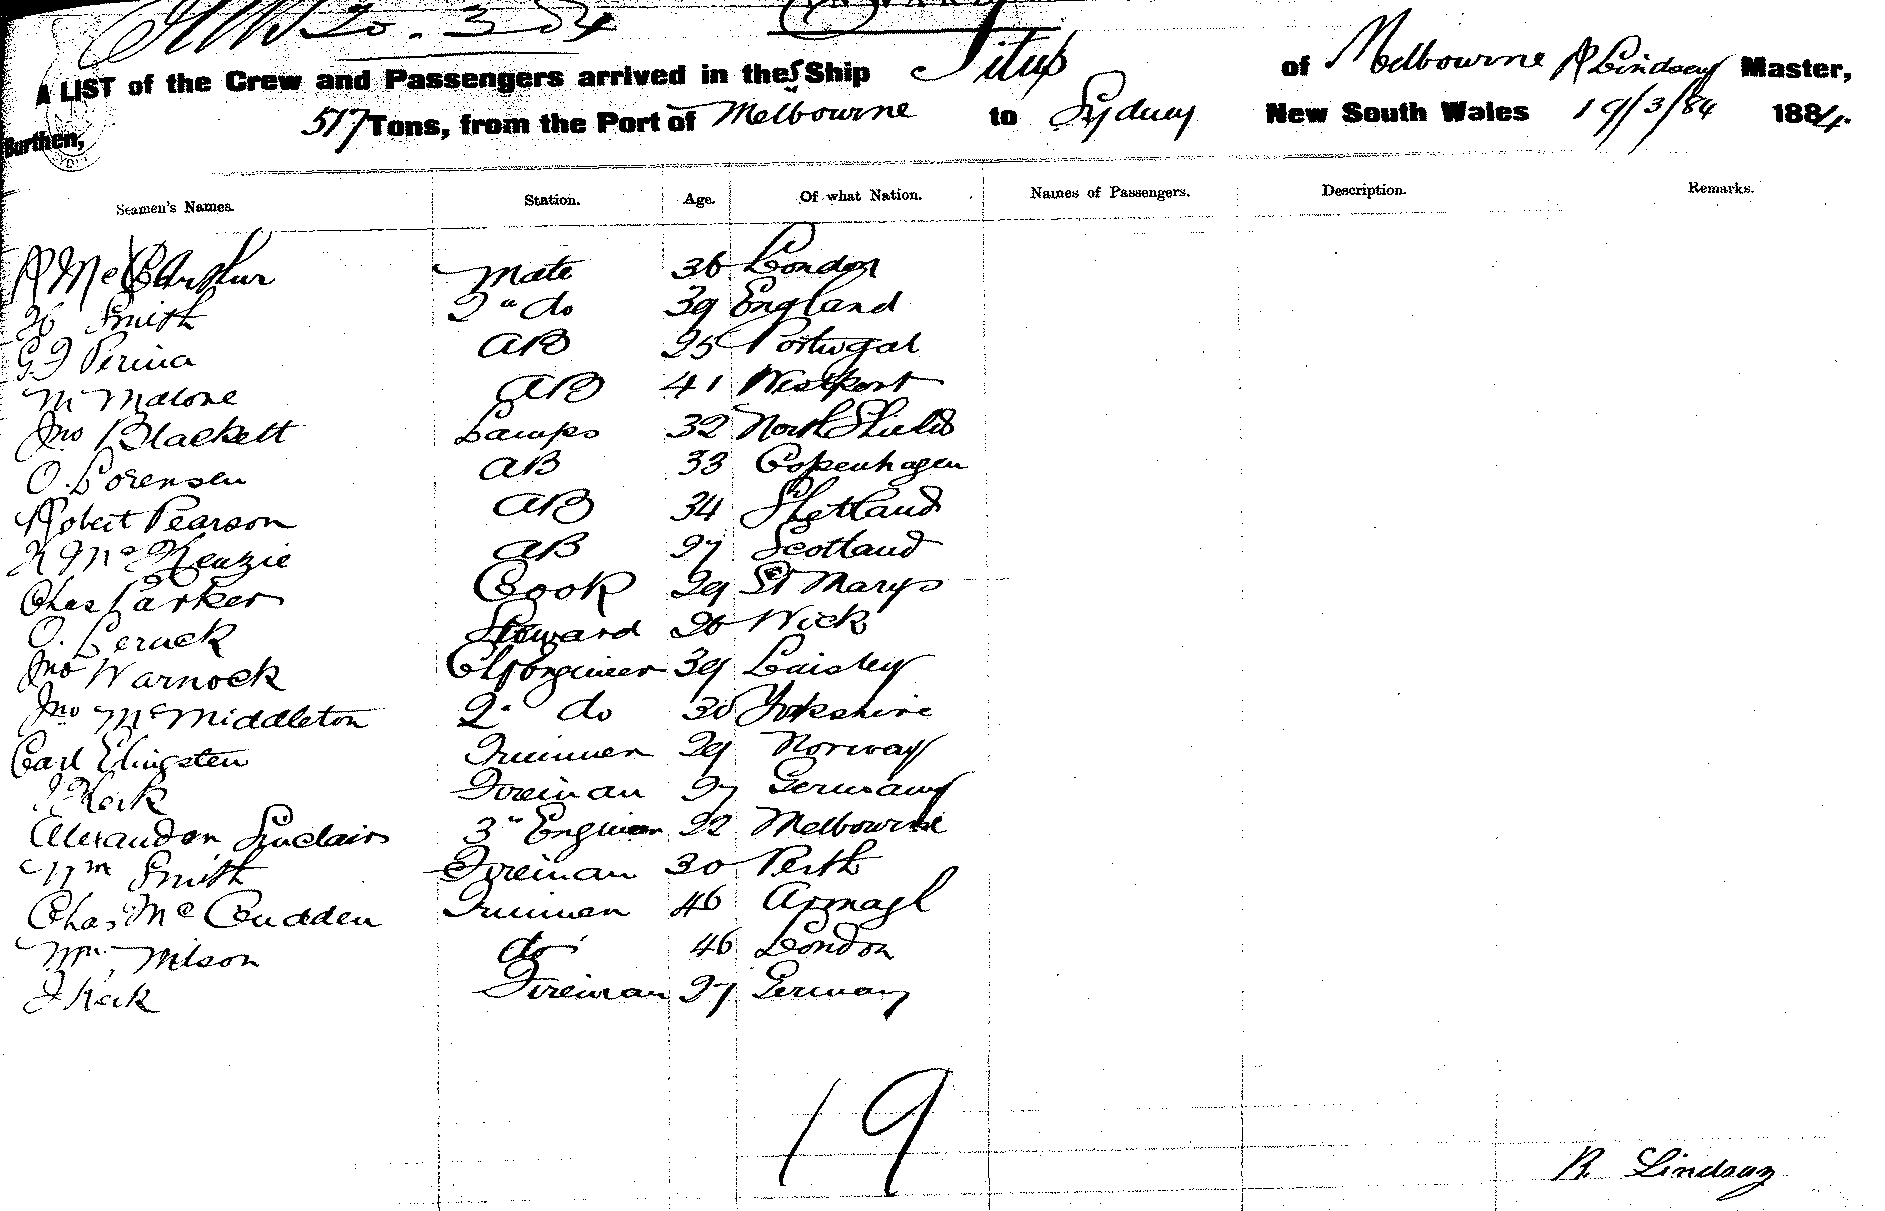 20.3.84
A LIST of the Crew and Passengers arrived in the S Ship Titus of Melbourne R Lindsay Master,
Burthen, 517 Tons, from the Port of Melbourne to Sydney New South Wales 19/3/84 1884.
Seamen's Names. Station. Age. Of what Nation. Names of Passengers. Description. Remarks.
Mc Arthur Mate 36 London
Smith 2" do 39 England
Perina AB 25 Portugal
M Malone AB 41 Westport
Jno Blackett Lamps 32 North Shields
O. Sorensen AB 33 Copenhagen
Robert Pearson AB 34 Shetland
K Mc Kenzie AB 27 Scotland
Chas Parker Cook 29 St Marys
Steward 26 Wick
Jno Warnock Ch Engineer 39 Paisley
Jno Mc Middleton 2" do 30 Yorkshire
Carl Elingsten Trimmer 29 Norway
J Keik Fireman 27 Germany
Alexander Sinclair 3" Engineer 22 Melbourne
Wm Smith Fireman 30 Perth
Chas Mc Cudden Trimmer 46 Armagh
Wm Wilson do 46 London
J Keik Fireman 27 Germany
19
R Lindsay